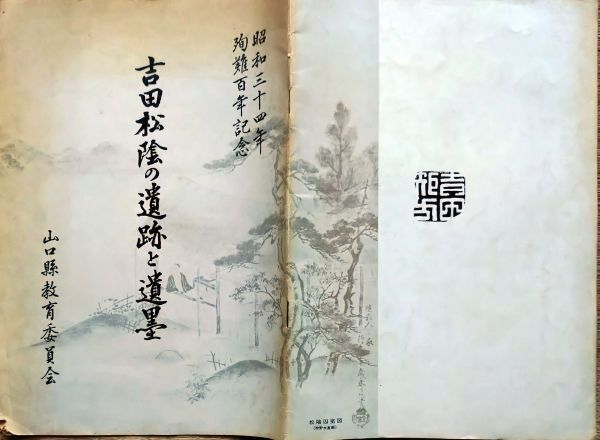 昭和三十四年
殉難百年記念
吉田松陰の遺跡と遺墨
山口縣教育委員会